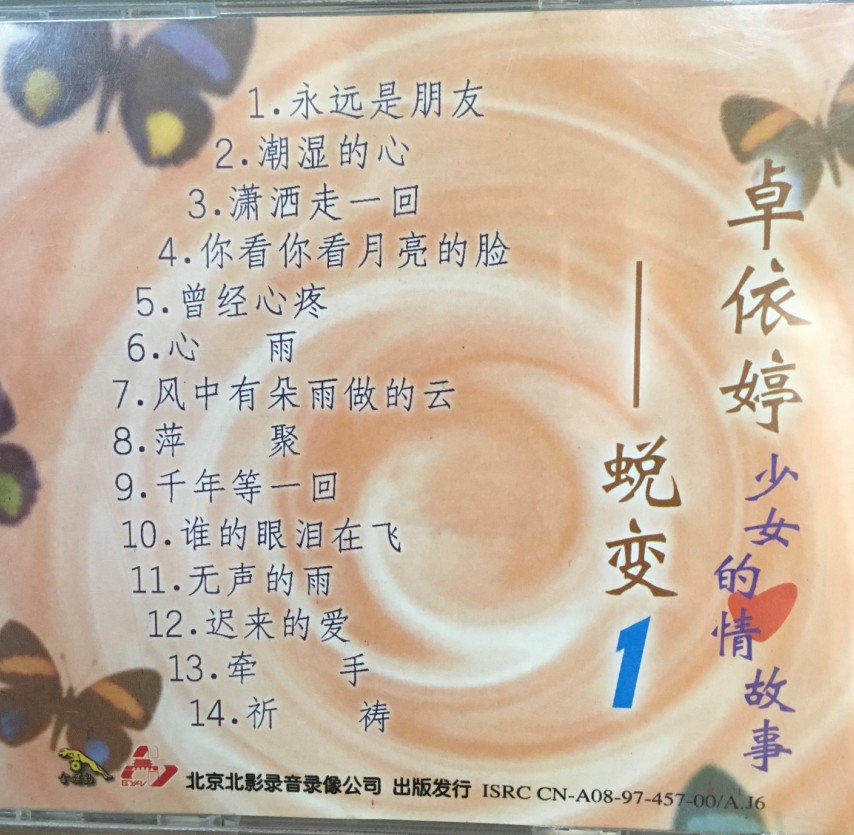 1.永远是朋友
2.潮湿的心
3.潇洒走一回
4.你看你看月亮的脸
5.曾经心疼
6.心 雨
7.风中有朵雨做的云
8.萍 聚
9.千年等一回
10.谁的眼泪在飞
11.无声的雨
12.迟来的爱
13.牵 手
14.祈 祷
卓依婷
少女的情故事
——蜕变1
北京北影录音录像公司 出版发行 ISRC CN-A08-97-457-00/A.J6